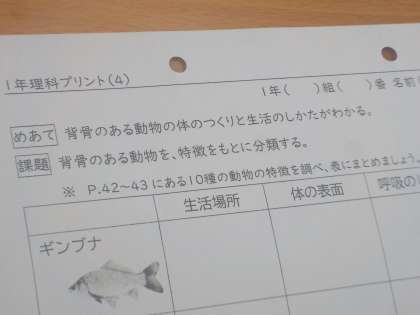 1年理科プリント(4)
1年( )組( )番 名前(
めあて 背骨のある動物の体のつくりと生活のしかたがわかる。
課題 背骨のある動物を、特徴をもとに分類する。
※ P.42～43にある10種の動物の特徴を調べ、表にまとめましょう。
生活場所 体の表面 呼吸の
ギンブナ